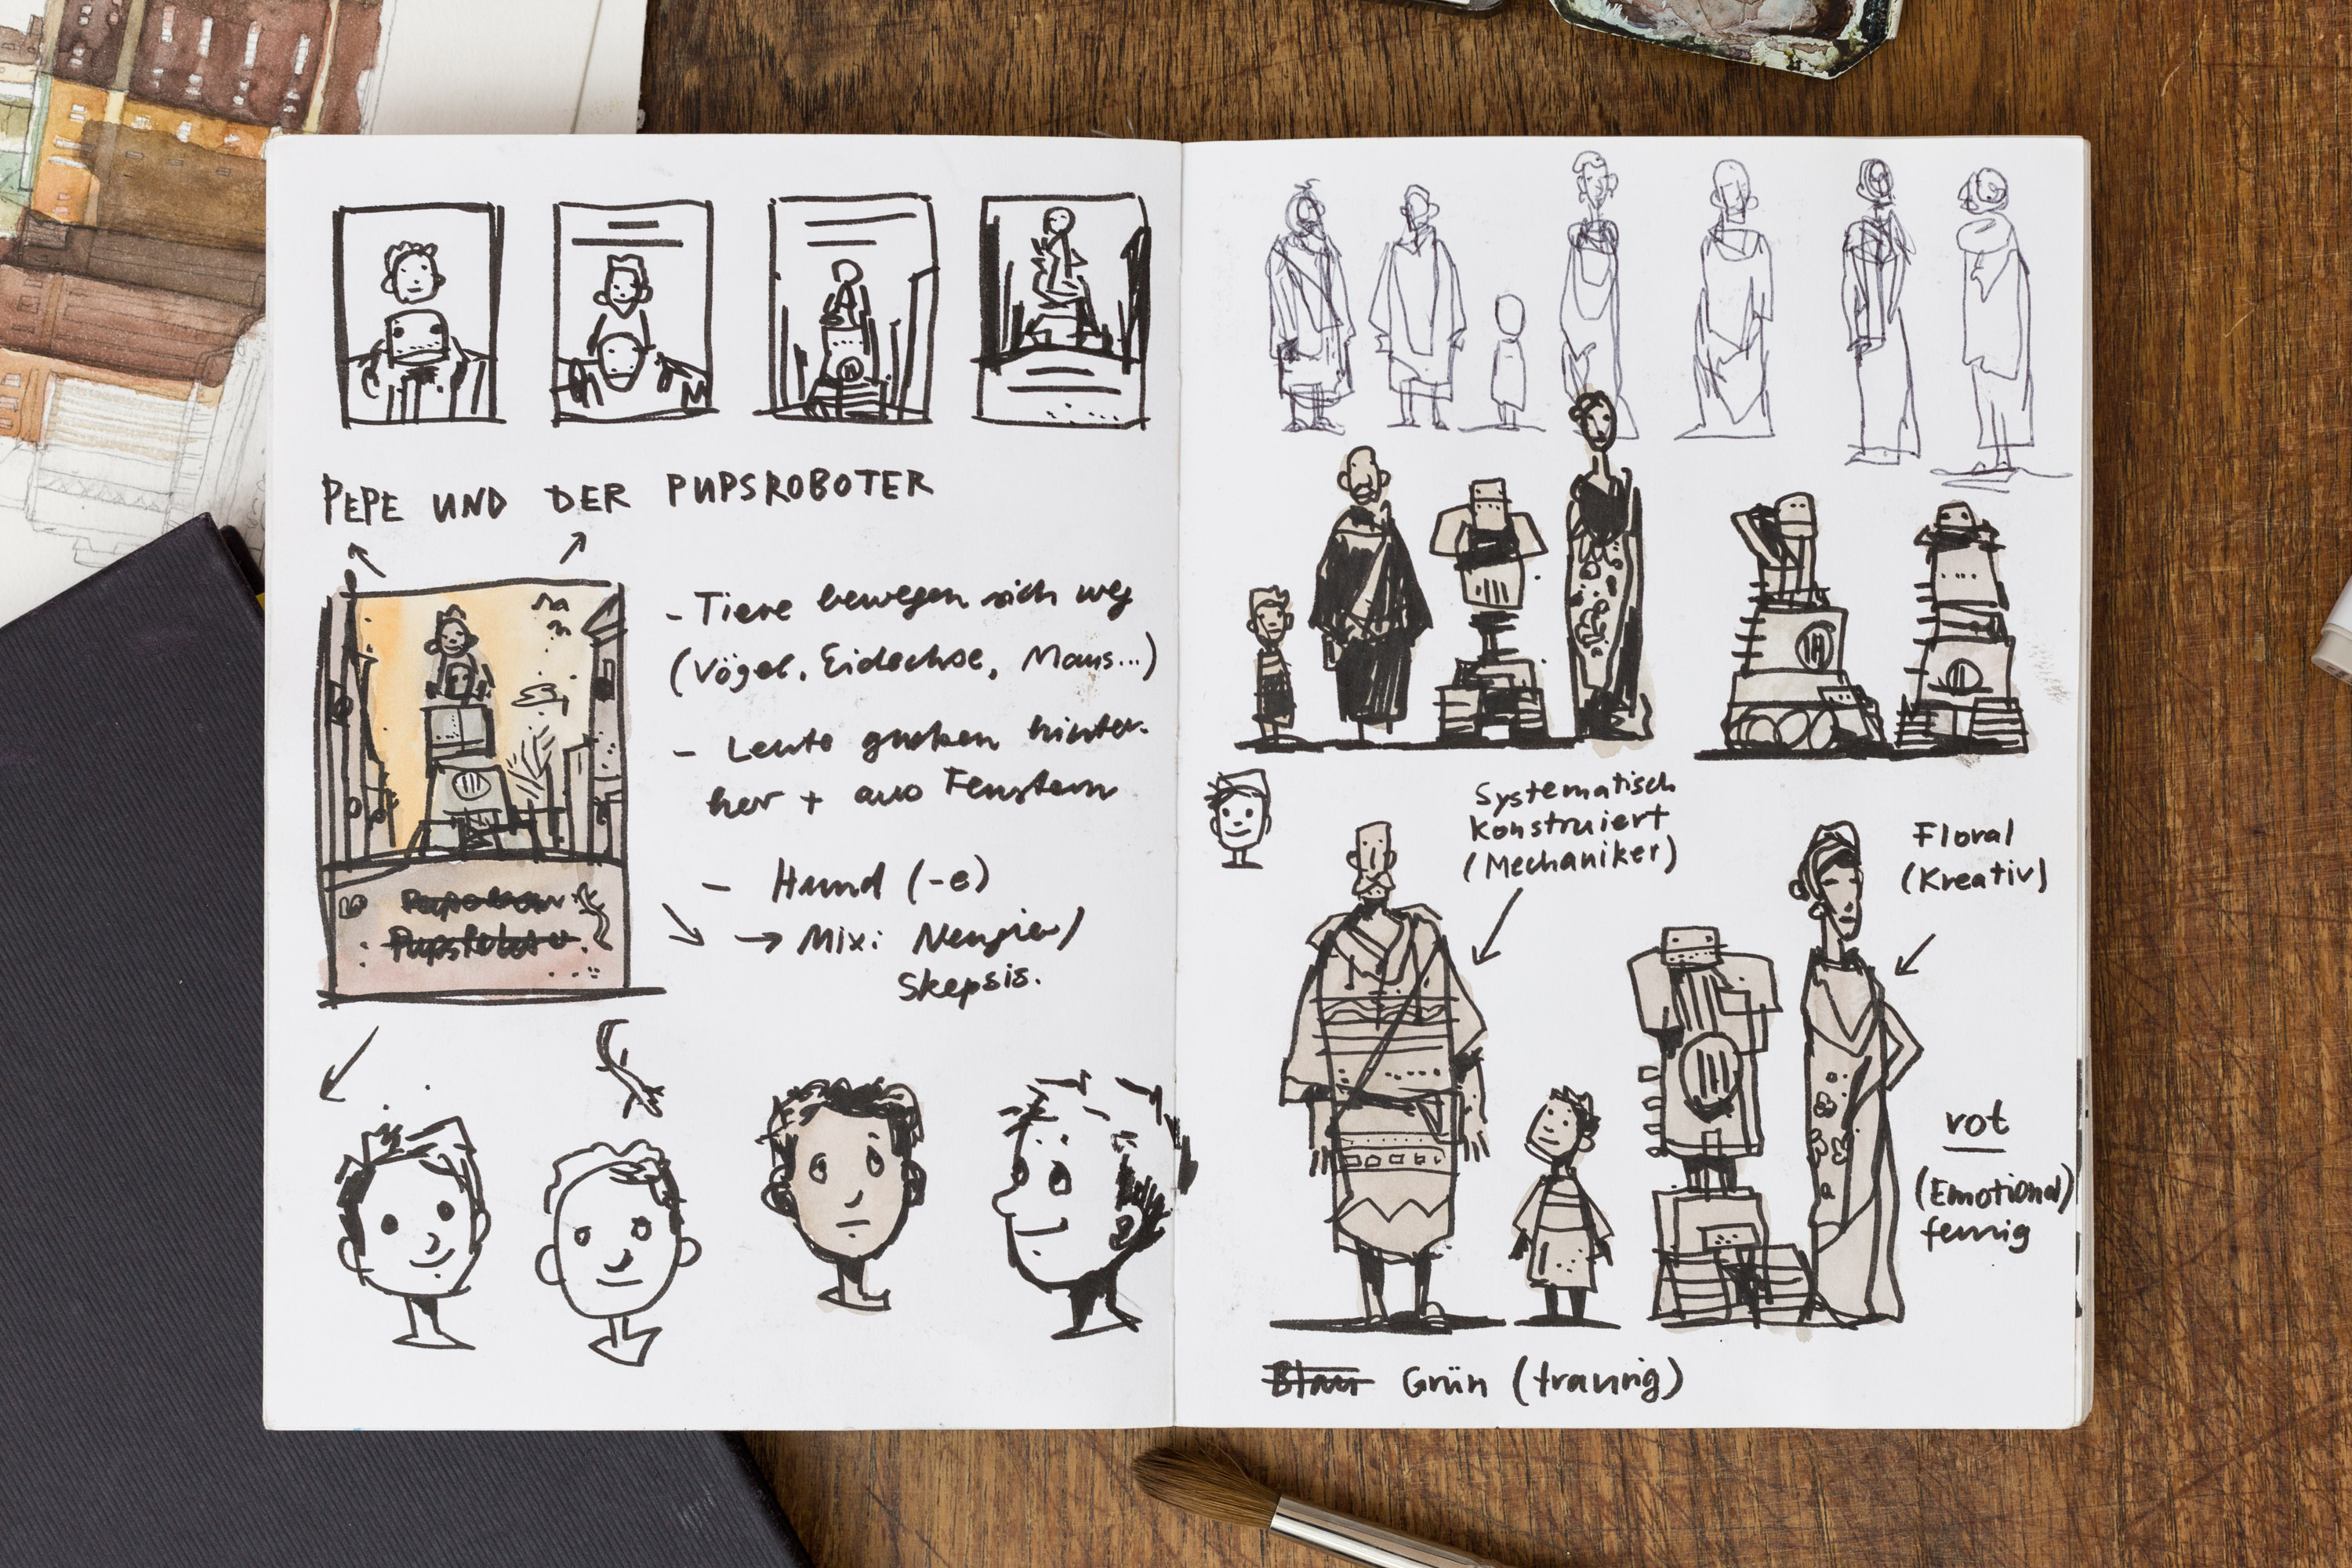 PEPE UND DER PUPSROBOTER
- Tiere bewegen sich weg
(Vögel, Eidechse, Maus...)
- Leute gucken hinter-
her + aus Fenstern
- Hund (-e)
→ Mix: Neugier/
Skepsis.
Pupsroboter
Systematisch
Konstruiert
(Mechaniker)
Floral
(Kreativ)
rot
(Emotional)
feurig
Blau Grün (traurig)